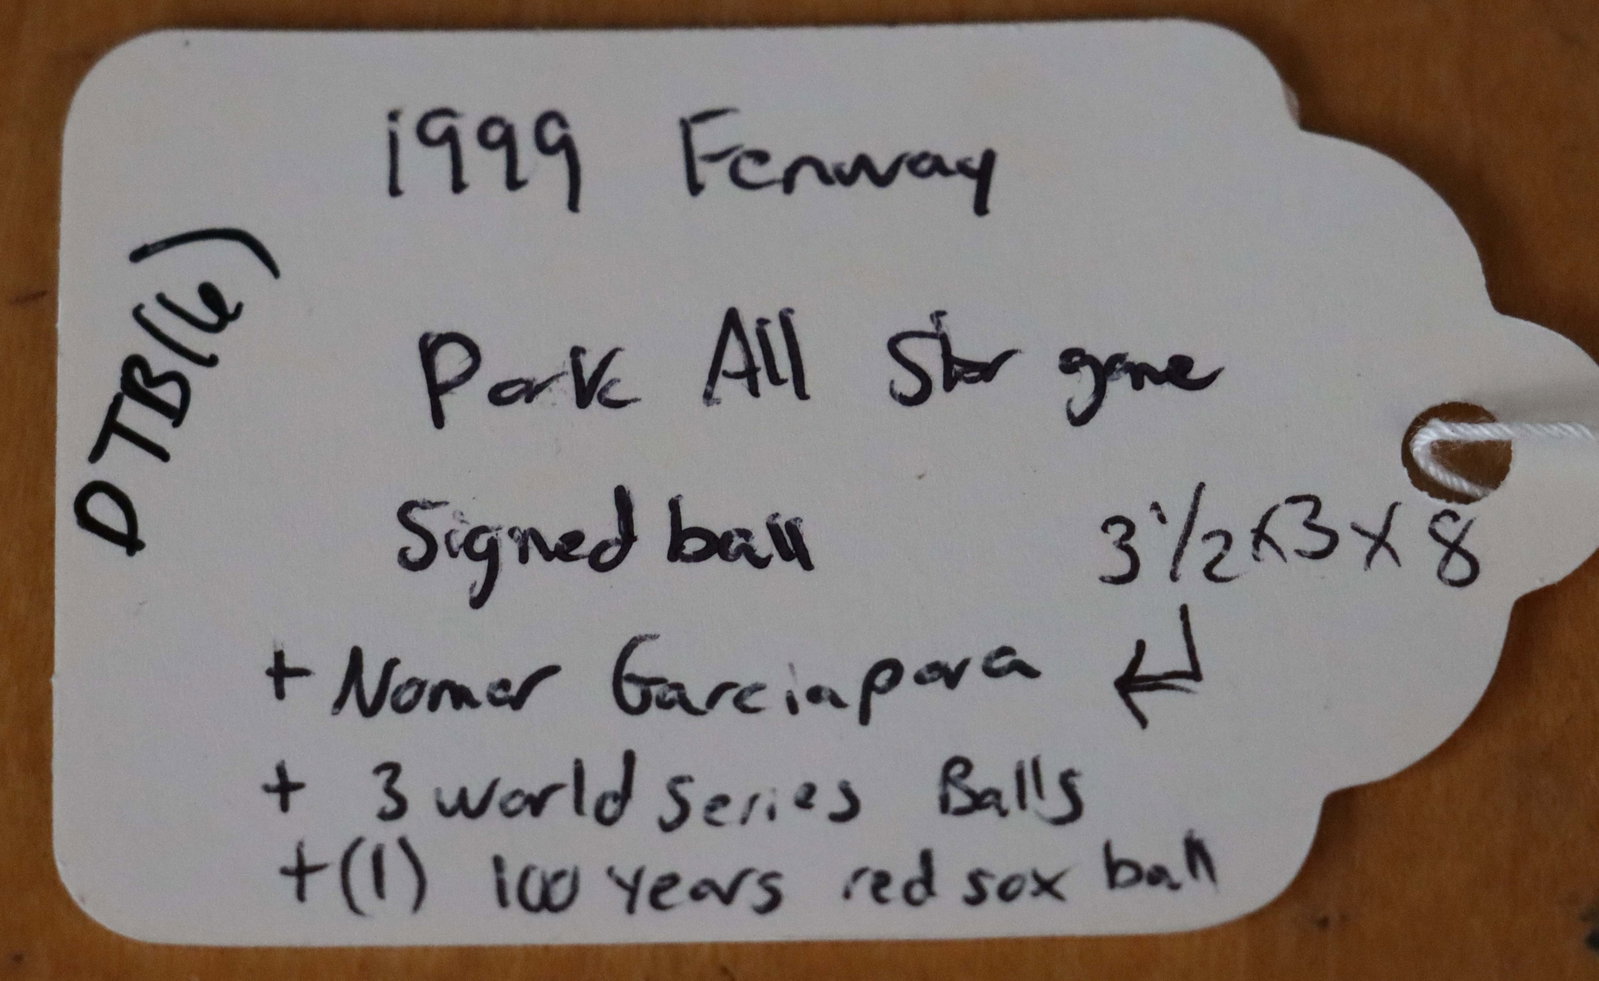 1999 Fenway
Park All Star game
Signed ball
3 1/2 x 3 x 8
+ Nomar Garciapara
+ 3 world series Balls
+ (1) 100 years red sox ball
DTB(6)